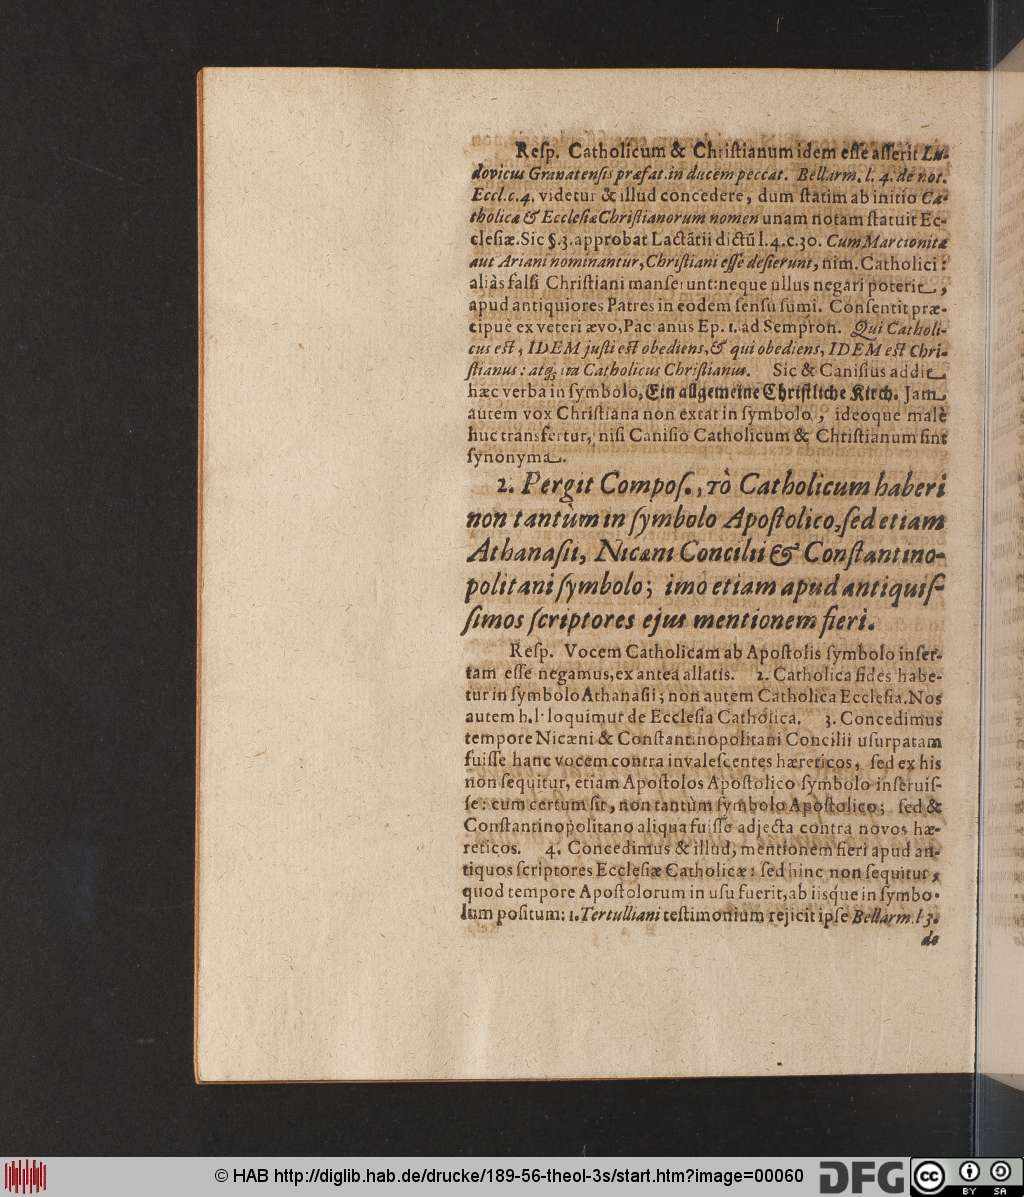 Resp. Catholicum & Christianum idem esse asserit Lu-
dovicus Granatensis præfat. in ducem peccat. Bellarm. l. 4. de not.
Eccl. c. 4. videtur & illud concedere, dum statim ab initio Ca-
tholicæ & Ecclesiæ Christianorum nomen unam notam statuit Ec-
clesiæ. Sic §. 3. approbat Lactãtii dictũ l. 4. c. 30. Cum Marcionitæ
aut Ariani nominantur, Christiani esse desierunt, nim. Catholici:
aliàs falsi Christiani manserunt: neque ullus negari poterit,
apud antiquiores Patres in eodem sensu sumi. Consentit præ-
cipuè ex veteri ævo, Pacianus Ep. 1. ad Sempron. Qui Catholi-
cus est, IDEM justi est obediens, & qui obediens, IDEM est Chri-
stianus: atq; ita Catholicus Christianus. Sic & Canisius addit
hæc verba in symbolo, Ein allgemeine Christliche Kirch. Jam
autem vox Christiana non extat in symbolo, ideoque malè
huc transfertur, nisi Canisio Catholicum & Christianum sint
synonyma.
2. Pergit Compos., τὸ Catholicum haberi
non tantùm in symbolo Apostolico, sed etiam
Athanasii, Nicæni Concilii & Constantino-
politani symbolo; imò etiam apud antiquis-
simos scriptores ejus mentionem fieri.
Resp. Vocem Catholicam ab Apostolis symbolo inser-
tam esse negamus, ex antea allatis. 2. Catholica fides habe-
tur in symbolo Athanasii; non autem Catholica Ecclesia. Nos
autem h. l. loquimur de Ecclesia Catholica. 3. Concedimus
tempore Nicæni & Constantinopolitani Concilii usurpatam
fuisse hanc vocem contra invalescentes hæreticos, sed ex his
non sequitur, etiam Apostolos Apostolico symbolo inseruis-
se: cum certum sit, non tantùm symbolo Apostolico; sed &
Constantinopolitano aliqua fuisse adjecta contra novos hæ-
reticos. 4. Concedimus & illud, mentionem fieri apud an-
tiquos scriptores Ecclesiæ Catholicæ: sed hinc non sequitur,
quod tempore Apostolorum in usu fuerit, ab iisque in symbo-
lum positum: 1. Tertulliani testimonium rejicit ipse Bellarm. l 3.
de
© HAB http://diglib.hab.de/drucke/189-56-theol-3s/start.htm?image=00060
DFG
cc BY SA